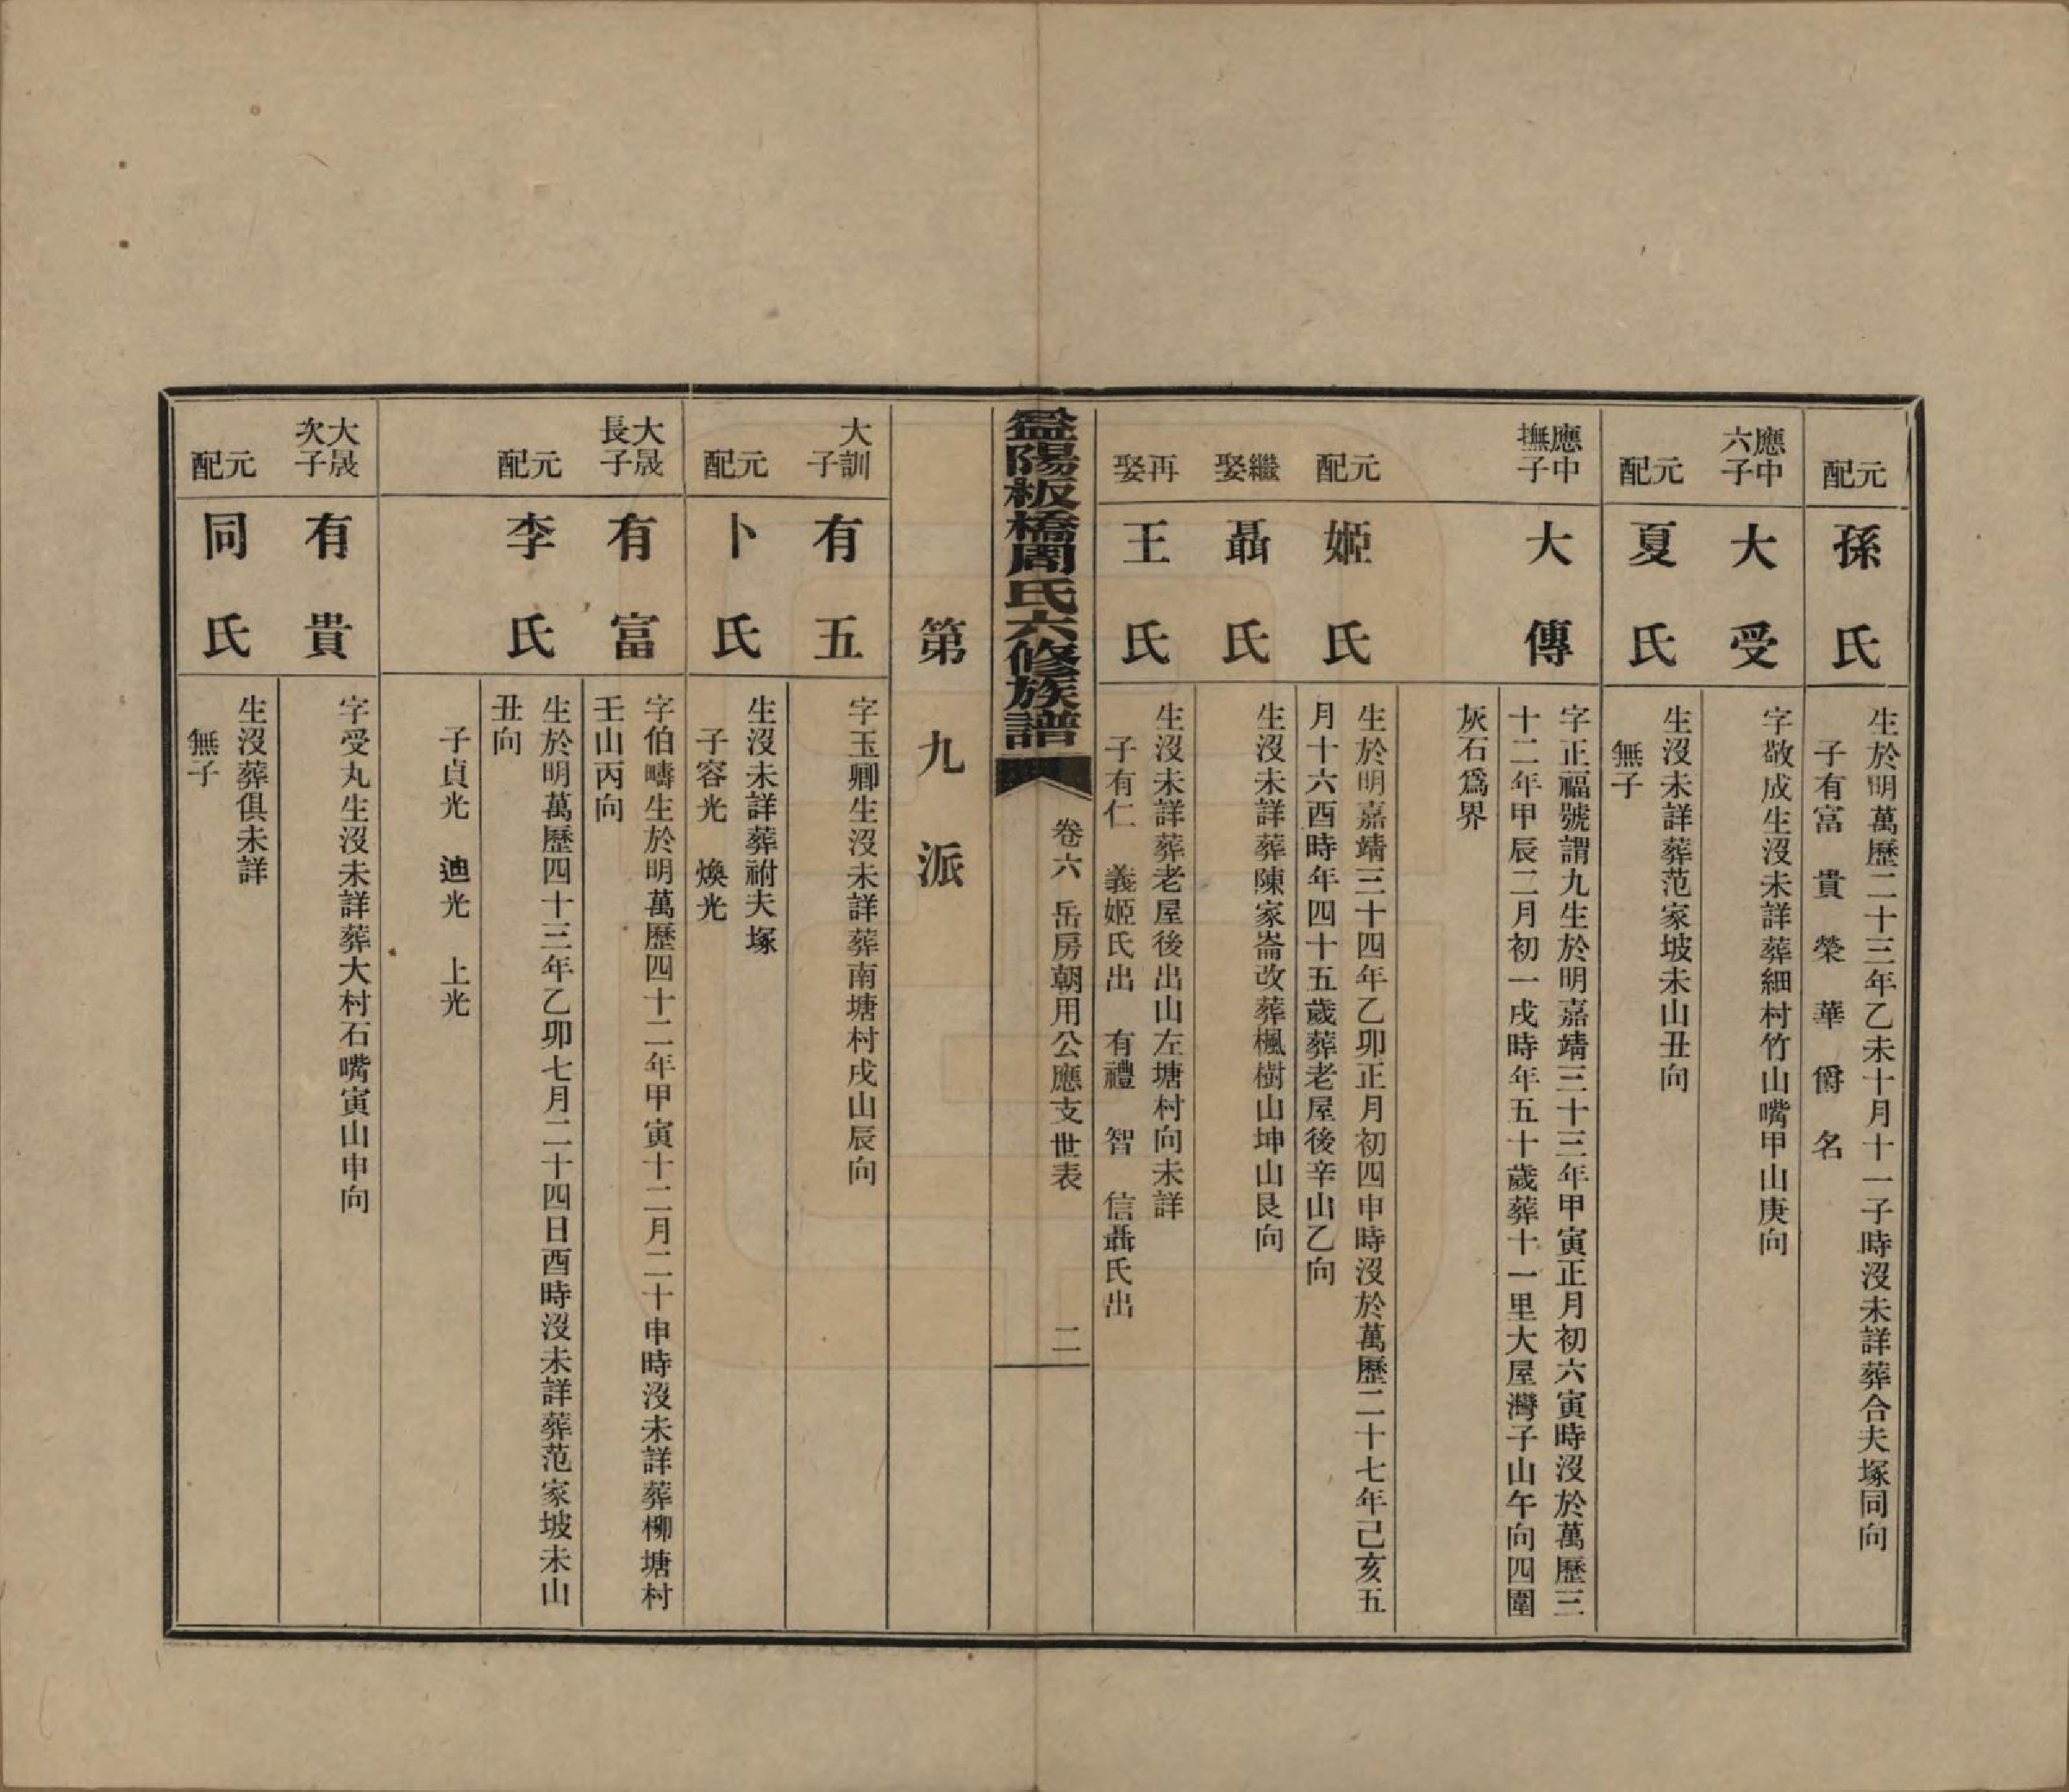 元配
孫氏
生於明萬歷二十三年乙未十月十一子時沒未詳葬合夫塚同向
子有富　貴　榮　華　爵　名
應中六子
大受
字敬成生沒未詳葬細村竹山嘴甲山庚向
元配
夏氏
生沒未詳葬范家坡未山丑向
無子
應中撫子
大傳
字正福號謂九生於明嘉靖三十三年甲寅正月初六寅時沒於萬歷三
十二年甲辰二月初一戌時年五十歲葬十一里大屋灣子山午向四圍
灰石爲界
元配
姬氏
生於明嘉靖三十四年乙卯正月初四申時沒於萬歷二十七年己亥五
月十六酉時年四十五歲葬老屋後辛山乙向
繼娶
聶氏
生沒未詳葬陳家崙改葬楓樹山坤山艮向
再娶
王氏
生沒未詳葬老屋後出山左塘村向未詳
子有仁　義姬氏出　有禮　智　信聶氏出
益陽板橋周氏六修族譜
卷六　岳房朝用公應支世表
二
第九派
大訓子
有五
字玉卿生沒未詳葬南塘村戌山辰向
元配
卜氏
生沒未詳葬祔夫塚
子容光　煥光
大晟長子
有富
字伯疇生於明萬歷四十二年甲寅十二月二十申時沒未詳葬柳塘村
壬山丙向
元配
李氏
生於明萬歷四十三年乙卯七月二十四日酉時沒未詳葬范家坡未山
丑向
子貞光　迪光　上光
大晟次子
有貴
字受丸生沒未詳葬大村石嘴寅山申向
元配
同氏
生沒葬俱未詳
無子